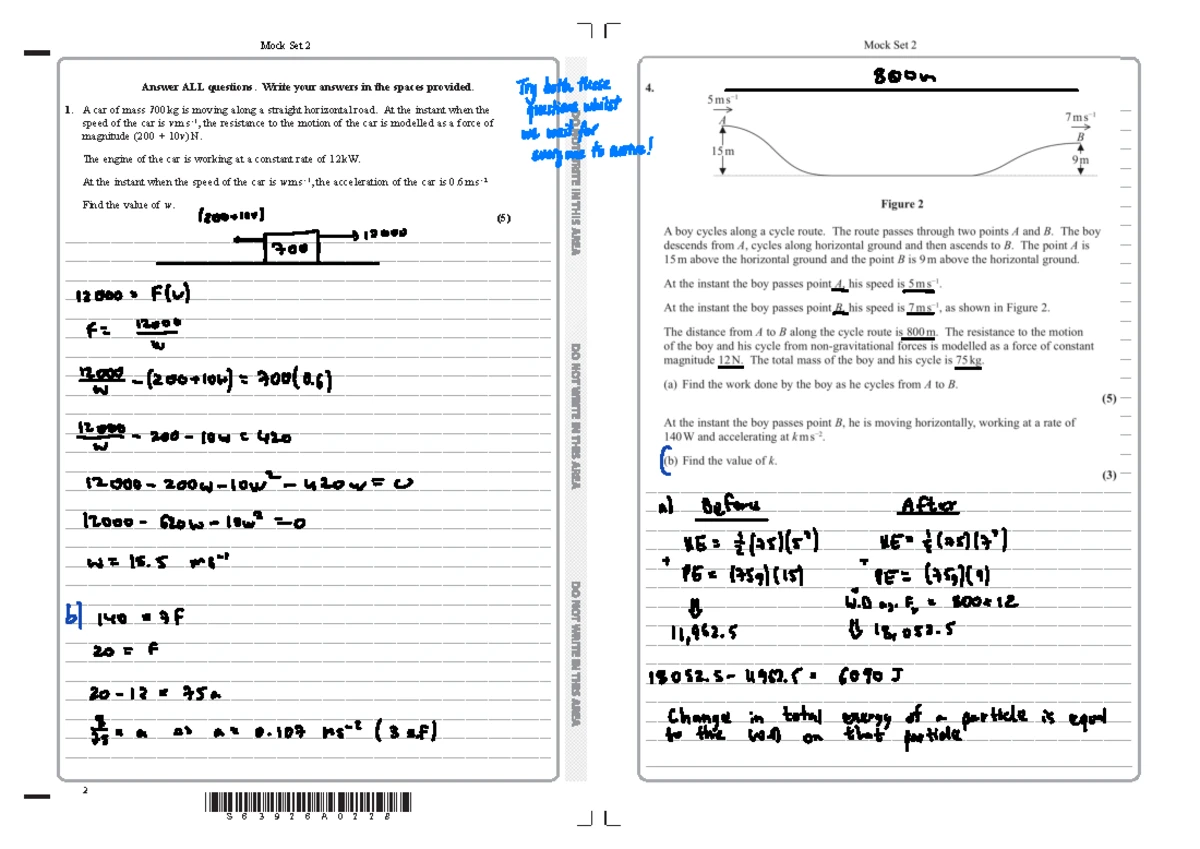 Mock Set 2
Answer ALL questions. Write your answers in the spaces provided.
1. A car of mass 700 kg is moving along a straight horizontal road. At the instant when the
speed of the car is v m s⁻¹, the resistance to the motion of the car is modelled as a force of
magnitude (200 + 10v) N.
The engine of the car is working at a constant rate of 12 kW.
At the instant when the speed of the car is w m s⁻¹, the acceleration of the car is 0.6 m s⁻²
Find the value of w.
(5)
(200+10v)
700
12000
12000 = F(v)
F = 12000/w
12000/w - (200+10w) = 700(0.6)
12000/w - 200 - 10w = 420
12000 - 200w - 10w² - 420w = 0
12000 - 620w - 10w² = 0
w = 15.5 ms⁻¹
b) 140 = 7F
20 = F
20 - 12 = 75a
8/75 = a ⇒ a = 0.107 ms⁻² (3 s.f)
2
S63926A0228
Try both these
questions whilst
we wait for
everyone to arrive!
DO NOT WRITE IN THIS AREA
DO NOT WRITE IN THIS AREA
DO NOT WRITE IN THIS AREA
Mock Set 2
4.
800m
5 m s⁻¹
A
15 m
7 m s⁻¹
B
9 m
Figure 2
A boy cycles along a cycle route. The route passes through two points A and B. The boy
descends from A, cycles along horizontal ground and then ascends to B. The point A is
15 m above the horizontal ground and the point B is 9 m above the horizontal ground.
At the instant the boy passes point A, his speed is 5 m s⁻¹.
At the instant the boy passes point B, his speed is 7 m s⁻¹, as shown in Figure 2.
The distance from A to B along the cycle route is 800 m. The resistance to the motion
of the boy and his cycle from non-gravitational forces is modelled as a force of constant
magnitude 12 N. The total mass of the boy and his cycle is 75 kg.
(a) Find the work done by the boy as he cycles from A to B.
(5)
At the instant the boy passes point B, he is moving horizontally, working at a rate of
140 W and accelerating at k m s⁻².
(b) Find the value of k.
(3)
a) Before After
KE = ½(75)(5²) KE = ½(75)(7²)
+ PE = (75g)(15) + PE = (75g)(9)
+ W.D ag. Fr = 800×12
⇓ 11,962.5 ⇓ 18,052.5
18052.5 - 11962.5 = 6090 J
Change in total energy of a particle is equal
to the W.D on that particle